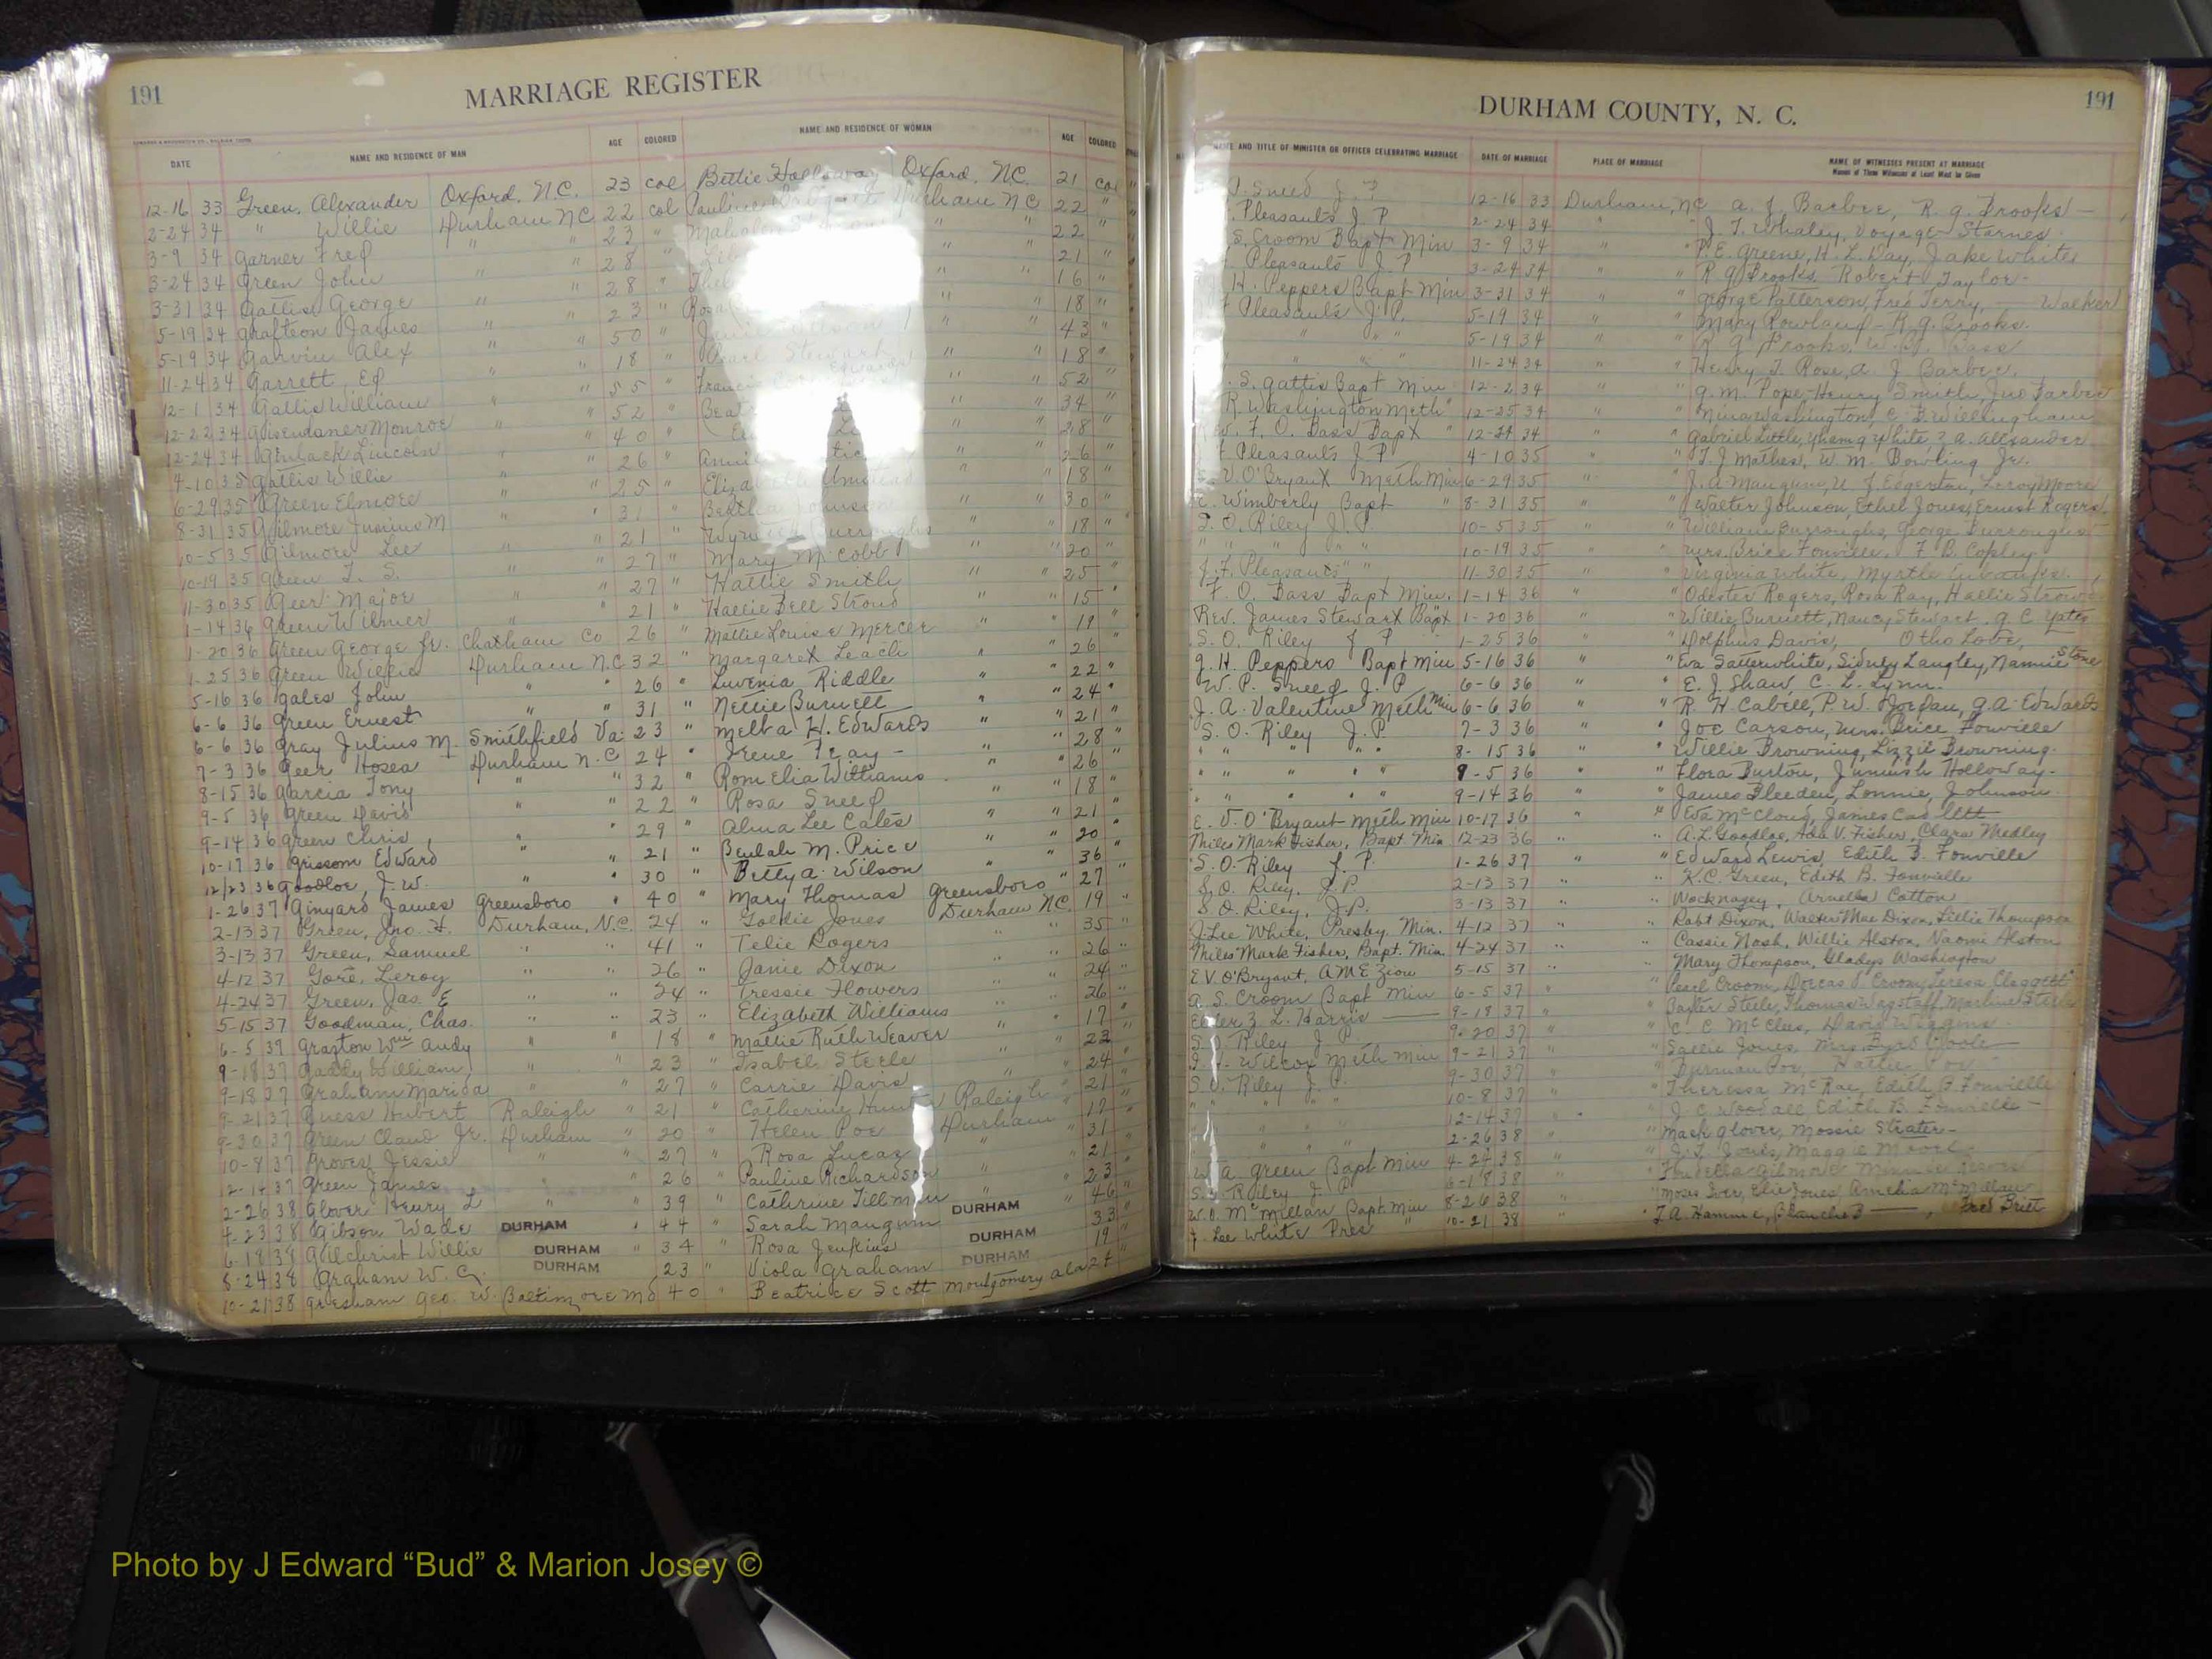 191
MARRIAGE REGISTER
DATE NAME AND RESIDENCE OF MAN AGE COLORED NAME AND RESIDENCE OF WOMAN AGE COLORED
12-16 33 Green, Alexander Oxford, N.C. 23 col Bettie Holloway Oxford, N.C. 21 col
2-24 34 " Willie Durham NC 22 col Pauline Durham NC 22 "
3-9 34 Garner Fred " " 23 " " " 22
3-24 34 Green John " " 28 " " " 21 "
3-31 34 Gattis George " " 28 " " " 16 "
5-19 34 Grafteon James " " 23 " Rosa " " 18 "
5-19 34 Garvin Alex " " 50 " " " 43 "
11-24 34 Garrett, Ed " " 18 " Pearl Stewart " " 18 "
12-1 34 Gattis William " " 55 " " " 52 "
12-22 34 Monroe " " 52 " " " 34 "
12-24 34 Lincoln " " 40 " " " 28 "
4-10 35 Gattis Willie " " 26 " " " 26 "
6-29 35 Green Elmore " " 25 " Umstead " " 18 "
8-31 35 Gilmore Junius M " " 31 " Bertha Johnson " " 30 "
10-5 35 Gilmore Lee " " 21 " Burroughs " " 18 "
10-19 35 Green T. S. " " 27 " Mary M. Cobb " " 20 "
11-30 35 Geer Major " " 27 " Hattie Smith " " 25 "
1-14 36 Green Wilmer " " 21 " Hallie Bell Stroud " " 15 "
1-20 36 Green George Jr. Chatham Co 26 " Mattie Louise Mercer " 19 "
1-25 36 Green Willie Durham N.C 32 " Margaret Leach " 26 "
5-16 36 Gales John " " 26 " Luvenia Riddle " 22 "
6-6 36 Green Ernest " " 31 " Nettie Burnett " 24 "
6-6 36 Gray Julius M. Smithfield Va. 23 " Melba H. Edwards " 21 "
7-3 36 Geer Hosea Durham N.C 24 " Irene Fray - " 28 "
8-15 36 Garcia Tony " " 32 " Romelia Williams " " 26 "
9-5 36 Green David " " 22 " Rosa Sneed " " 18 "
9-14 36 Green Chris, " " 29 " Alma Lee Cates " " 21 "
10-17 36 Grissom Edward " " 21 " Beulah M. Price " " 20 "
12/23 36 Goodloe, J.W. " " 30 " Betty A. Wilson " " 36 "
1-26 37 Ginyard James Greensboro " 40 " Mary Thomas Greensboro " 27 "
2-13 37 Green, Jno. H. Durham, N.C. 24 " Goldie Jones Durham N.C. 19 "
3-13 37 Green, Samuel " " 41 " Telie Rogers " " 35 "
4-12 37 Gore, Leroy " " 26 " Janie Dixon " " 26 "
4-24 37 Green, Jas. E " " 24 " Tressie Flowers " " 24 "
5-15 37 Goodman, Chas. " " 23 " Elizabeth Williams " " 26 "
6-5 37 Graxton Wm Andy " " 18 " Mattie Ruth Weaver " " 17 "
9-18 37 Gaddy William " " 23 " Isabel Steele " " 22 "
9-18 37 Graham Marida " " 27 " Carrie Davis " " 24 "
9-21 37 Guess Hubert Raleigh " 21 " Catherine Raleigh " 21 "
9-30 37 Green Claud Jr. Durham " 20 " Helen Poe Durham " 17 "
10-8 37 Groves Jessie " " 27 " Rosa Lucas " 31 "
12-14 37 Green James " " 26 " Pauline Richardson " 21 "
2-26 38 Glover Henry L " " 39 " Catherine Tillman " 23 "
4-23 38 Gibson Wade DURHAM " 44 " Sarah Mangum DURHAM 46 "
6-18 38 Gilchrist Willie DURHAM " 34 " Rosa Jenkins DURHAM 33 "
8-24 38 Graham W. C. DURHAM 23 " Viola Graham DURHAM 19 "
10-21 38 Gresham Geo. W. Baltimore Md 40 " Beatrice Scott Montgomery Ala
DURHAM COUNTY, N. C.
191
NAME AND TITLE OF MINISTER OR OFFICER CELEBRATING MARRIAGE DATE OF MARRIAGE PLACE OF MARRIAGE NAME OF WITNESSES PRESENT AT MARRIAGE
Names of Three Witnesses at Least Must be Given
Sneed J. P 12-16 33 Durham, NC A. J. Barbee, R. G. Brooks -
Pleasants J. P 2-24 34 " " J. T. Whaley, Voyage Starnes
S. Croom Bapt Min 3-9 34 " " P. E. Greene, H. L. Day, Jake White
Pleasants J. P 3-24 34 " " R G Brooks. Robert Taylor-
H. Peppers Bapt Min 3-31 34 " " George Patterson, Fred Terry, — Walker
Pleasants J. P. 5-19 34 " " Mary Rowland - R. G. Brooks.
" " " 5-19 34 " " R G Brooks, W. Bass
" " " 11-24 34 " " Henry T. Rose, A. J. Barbee.
S. Gattis Bapt Min 12-2 34 " " G. M. Pope, Henry Smith, Jno Barbee
R. Washington Meth " 12-25 34 " " Nina Washington, C. B. Willingham
Rev. F. O. Bass Bapt " 12-24 34 " " Gabriel Little, White Z. A. Alexander
Pleasants J. P 4-10 35 " " T. J Mathes, W. M. Bowling Jr.
E. V. O'Bryant Meth Min 6-29 35 " " J. A Mangum, U. J. Edgerton, Leroy Moore
Wimberly Bapt " 8-31 35 " " Walter Johnson, Ethel Jones, Ernest Rogers
S. O. Riley J. P. 10-5 35 " " William Burroughs, George Burroughs
" " " " 10-19 35 " " Mrs. Brice Fonville, F. B. Copley.
J. F. Pleasants " " 11-30 35 " " Virginia White, Myrtle Eubanks.
F. O. Bass Bapt Min. 1-14 36 " " Odester Rogers, Rosa Ray, Hallie Stroud
Rev. James Stewart Bapt 1-20 36 " " Willie Burnett, Nancy Stewart. G. C. Yates
S. O. Riley J P 1-25 36 " " Dolphus Davis, Otho Lobe,
J. H. Peppers Bapt Min 5-16 36 " " Eva Satterwhite, Sidney Langley, Nannie Stone
W. P. Sneed J. P 6-6 36 " " E. J. Shaw, C. L. Lynn.
J. A. Valentine Meth Min 6-6 36 " " R. H. Cabell, P. W. Jordan, G. A. Edwards
S. O. Riley J. P. 7-3 36 " " Joe Carson, Mrs. Brice Fonville
" " " " " 8-15 36 " " Willie Browning, Lizzie Browning.
" " " " " 9-5 36 " " Flora Burton, Junius Holloway-
" " " " " 9-14 36 " " James Bleeden, Lonnie, Johnson
E. V. O'Bryant Meth Min 10-17 36 " " Eva McCloud, James Cadlett
Miles Mark Fisher, Bapt. Min 12-23 36 " " A. L. Goodloe, Ada V. Fisher, Clara Medley
S. O. Riley J. P. 1-26 37 " " Edward Lewis, Edith B. Fonville
S. O. Riley, J.P. 2-13 37 " " K.C. Green, Edith B. Fonville
S O. Riley, J.P. 3-13 37 " " Wock Nagey, Arnella Cotton
J. Lee White, Presby. Min. 4-12 37 " " Robt Dixon, Walter Mae Dixon, Lillie Thompson
Miles Mark Fisher, Bapt. Min. 4-24 37 " " Cassie Nash, Willie Alston, Naomi Alston
E V. O'Bryant, AME Zion 5-15 37 " " Mary Thompson, Gladys Washington
A. S. Croom Bapt Min 6-5 37 " " Pearl Croom, Dorcas P. Croom, Teresa Claggett
Elder Z. L. Harris — 9-18 37 " " Baxter Steele, Thomas Wagstaff, Marline Steele
S O. Riley J. P 9-20 37 " " C. C. McClus, David Wiggins
J. H. Wilcox Meth Min 9-21 37 " " Sallie Jones, Mrs. Byrd Poole
S. O. Riley J. P. 9-30 37 " " Durman Poe, Hattie Poe
" " " " 10-8 37 " " Theressa McRae, Edith B. Fonville
" " " 12-14 37 " " J. C. Woodall Edith B. Fonville -
" " " 2-26 38 " " Mack Glover, Mossie Strater-
W. A Green Bapt Min 4-24 38 " " J. L. Jones, Maggie Moore
S. O. Riley J. P 6-18 38 " " Gilmore
W. D. McMillan Bapt. Min 8-26 38 " " Moses Iver, Elie Jones, Amelia McMillan
J. Lee White Pres " 10-21 38 " " J. A. Hammie, Blanche B —, Fred Britt
Photo by J Edward “Bud” & Marion Josey ©